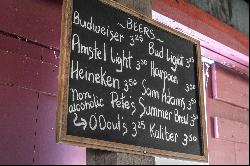 ~BEERS~
Budweiser 3.25 Bud Light 3.25
Amstel Light 3.50 Harpoon 3.50
Heineken 3.50 Sam Adams 3.50
Non alcoholic Pete's Summer Brew 3.50
→ O'Doul's 3.25 Kaliber 3.50